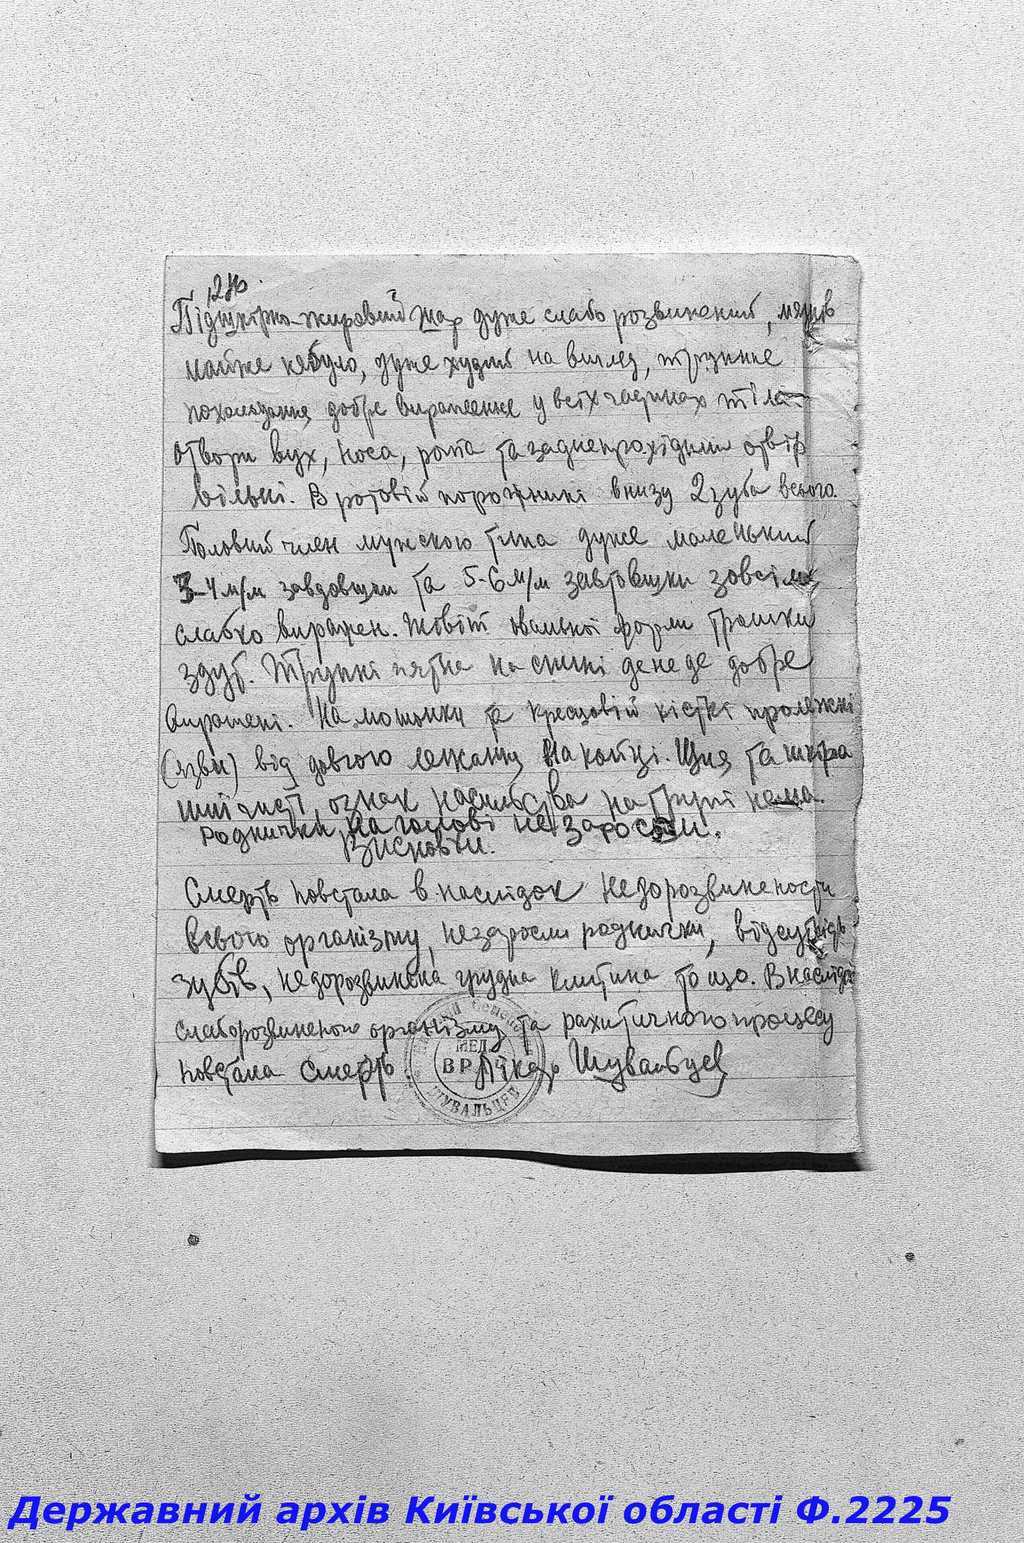 Підшкірно-жировий шар дуже слабо розвинений, мязів
майже небуло, дуже худий на вигляд, трупне
похолодання добре виражение у всіх частинах тіла
отвори вух, носа, рота та заднепрохідним отвір
вільні. В ротовій порожнині внизу 2 зуба всього.
Половий член мужского типа дуже маленький
3-4 м/м завдовшки та 5-6 м/м завтовшки зовсім
слабко виражен. Живіт овальної форми трошки
здут. Трупні пятна на спині де не де добре
виражені. На мошонки та кресцовій кісткі пролежні
(язви) від довгого лежання на койці. Шия та шкіра
чисті, ознак насильства на трупі нема.
Роднички на голові не заросли.
Висновки.
Смерть повстала в наслідок недорозвинености
всього організму, незаросли роднички, відсутність
зубів, недорозвинена грудна клитина то що. В наслідок
слаборозвиненого організму та рахитичного процесу
повстала смерть. Лікарь Шувальцев
МЕД
ВРАЧ
ШУВАЛЬЦЕВ
Державний архів Київської області Ф.2225